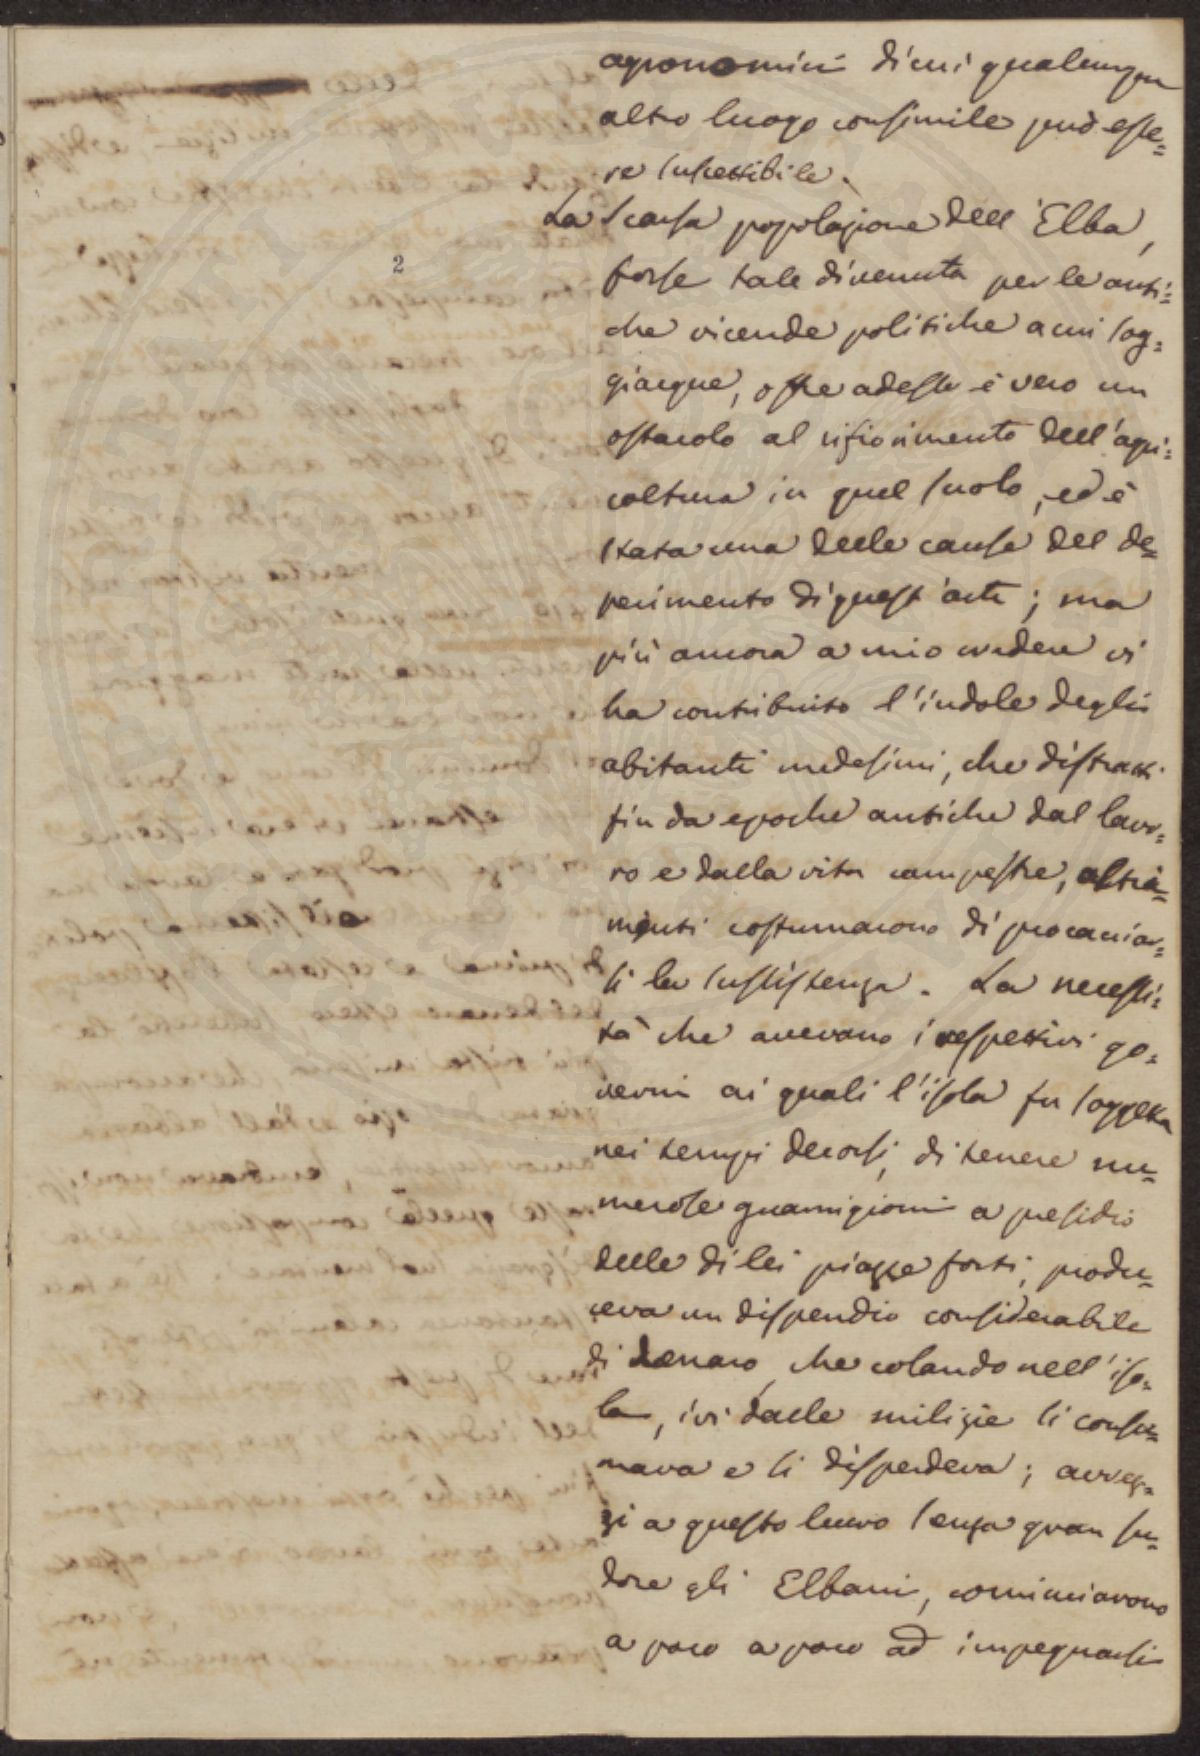 2
agronomici di cui qualunque
altro luogo consimile può esse=
re suscettibile.
La scarsa popolazione dell'Elba,
forse tale divenuta per le anti=
che vicende politiche a cui sog=
giacque, offre adesso è vero un
ostacolo al rifiorimento dell'agri=
coltura in quel suolo, ed è
stata una delle cause del de=
perimento di quest'arte; ma
più ancora a mio credere vi
ha contribuito l'indole degli
abitanti medesimi, che distratti
fin da epoche antiche dal lavo=
ro e dalla vita campestre, altri=
menti costumarono di procacciar=
si la sussistenza. La necessi=
tà che avevano i respettivi go=
verni ai quali l'isola fu soggetta
nei tempi decorsi, di tenere nu=
merose guarnigioni a presidio
delle di lei piazze forti, produ=
ceva un dispendio considerabile
di denaro, che colando nell'iso=
la, ivi dalle milizie si consu=
mava e si disperdeva; avvez=
zi a questo lucro senza gran su=
dore gli Elbani, cominciarono
a poco a poco ad impegnarsi